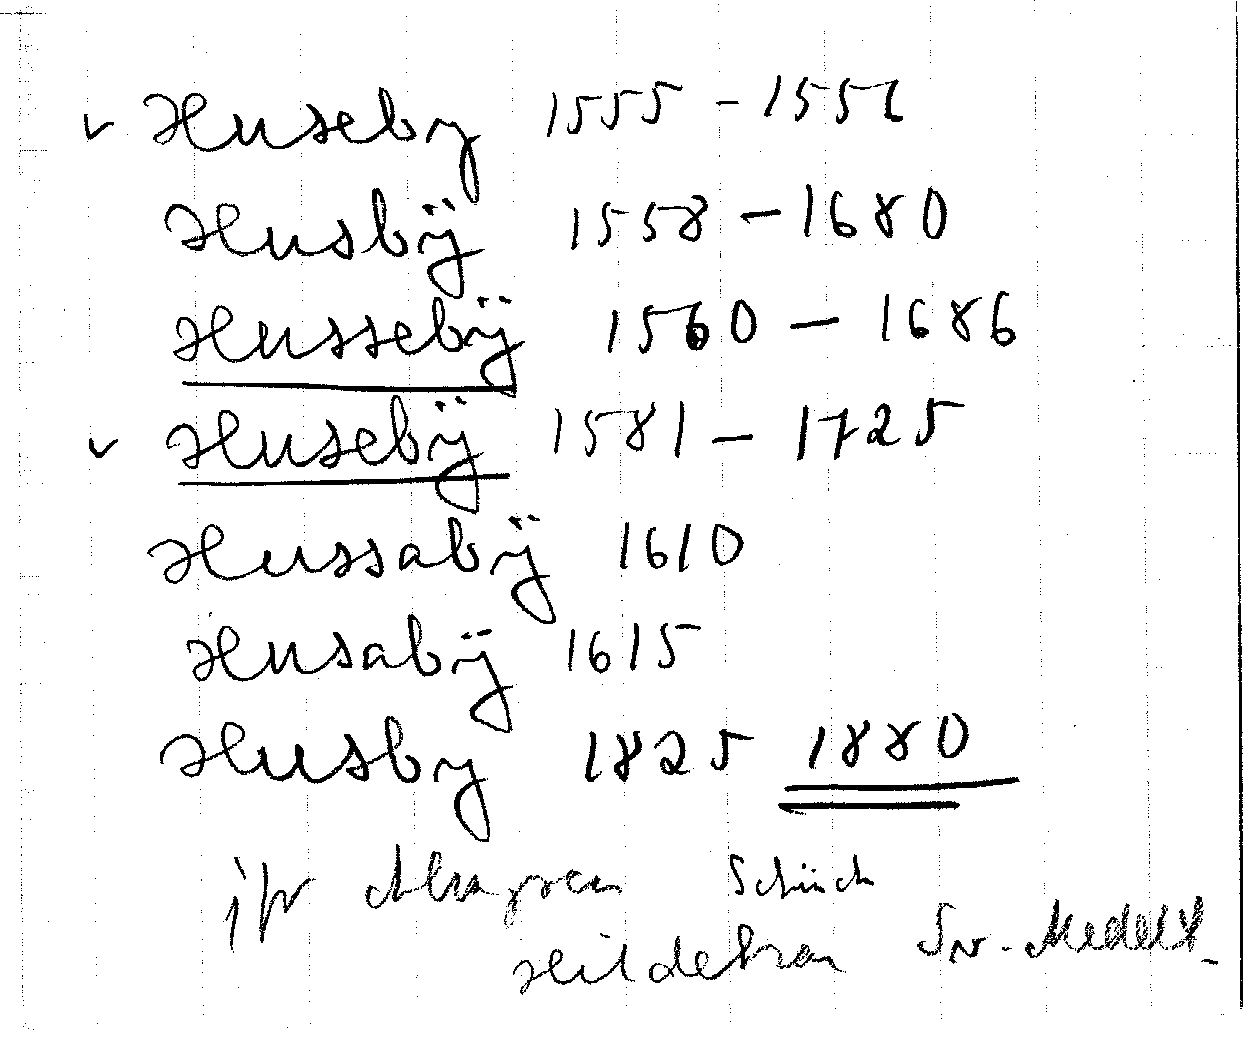 ✓ Huseby 1555 - 1556
Husbÿ 1558 - 1680
Hussebÿ 1560 - 1686
✓ Husebÿ 1581 - 1725
Hussabÿ 1610
Husabÿ 1615
Husby 1825 1880
jfr Schück
Hildebran Sv. Medelt.